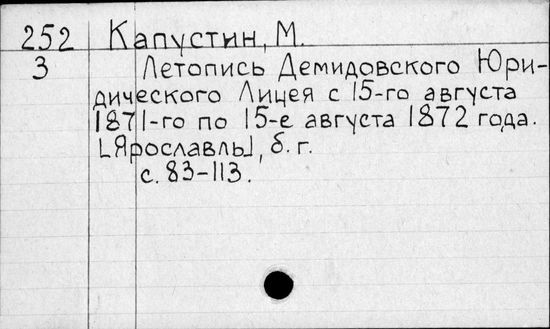 252 Капустин, М.
3 Летопись Демидовского Юри-
дического Лицея с 15-го августа
1871-го по 15-е августа 1872 года.
[Ярославль], б. г.
с. 83-113.